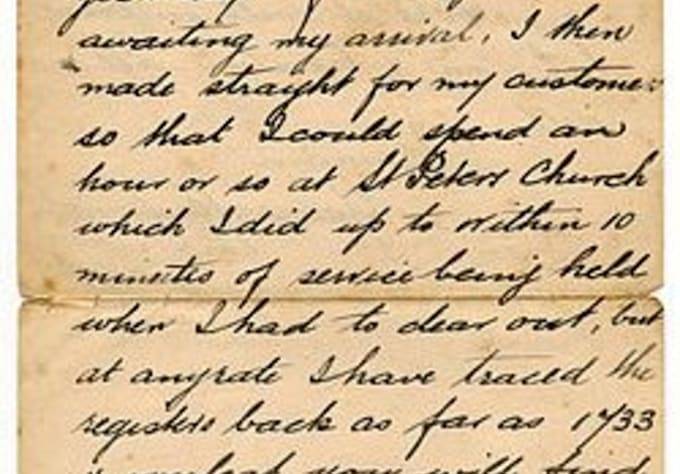 awaiting my arrival, I then
made straight for my customer
so that I could spend an
hour or so at St Peters Church
which I did up to within 10
minutes of service being held
when I had to clear out, but
at anyrate I have traced the
registers back as far as 1733
you will find